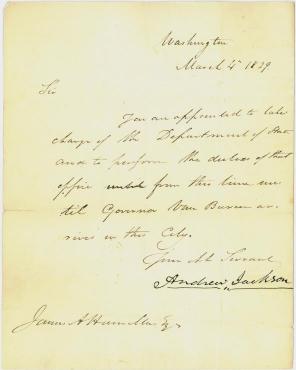 Washington
March 4th 1829
Sir
You are appointed to take
charge of the Department of State
and to perform the duties of that
office until from this time un
til Governor Van Buren ar
rives in this City.
Your Ob. Servant
Andrew Jackson
James A Hamilton Esq.